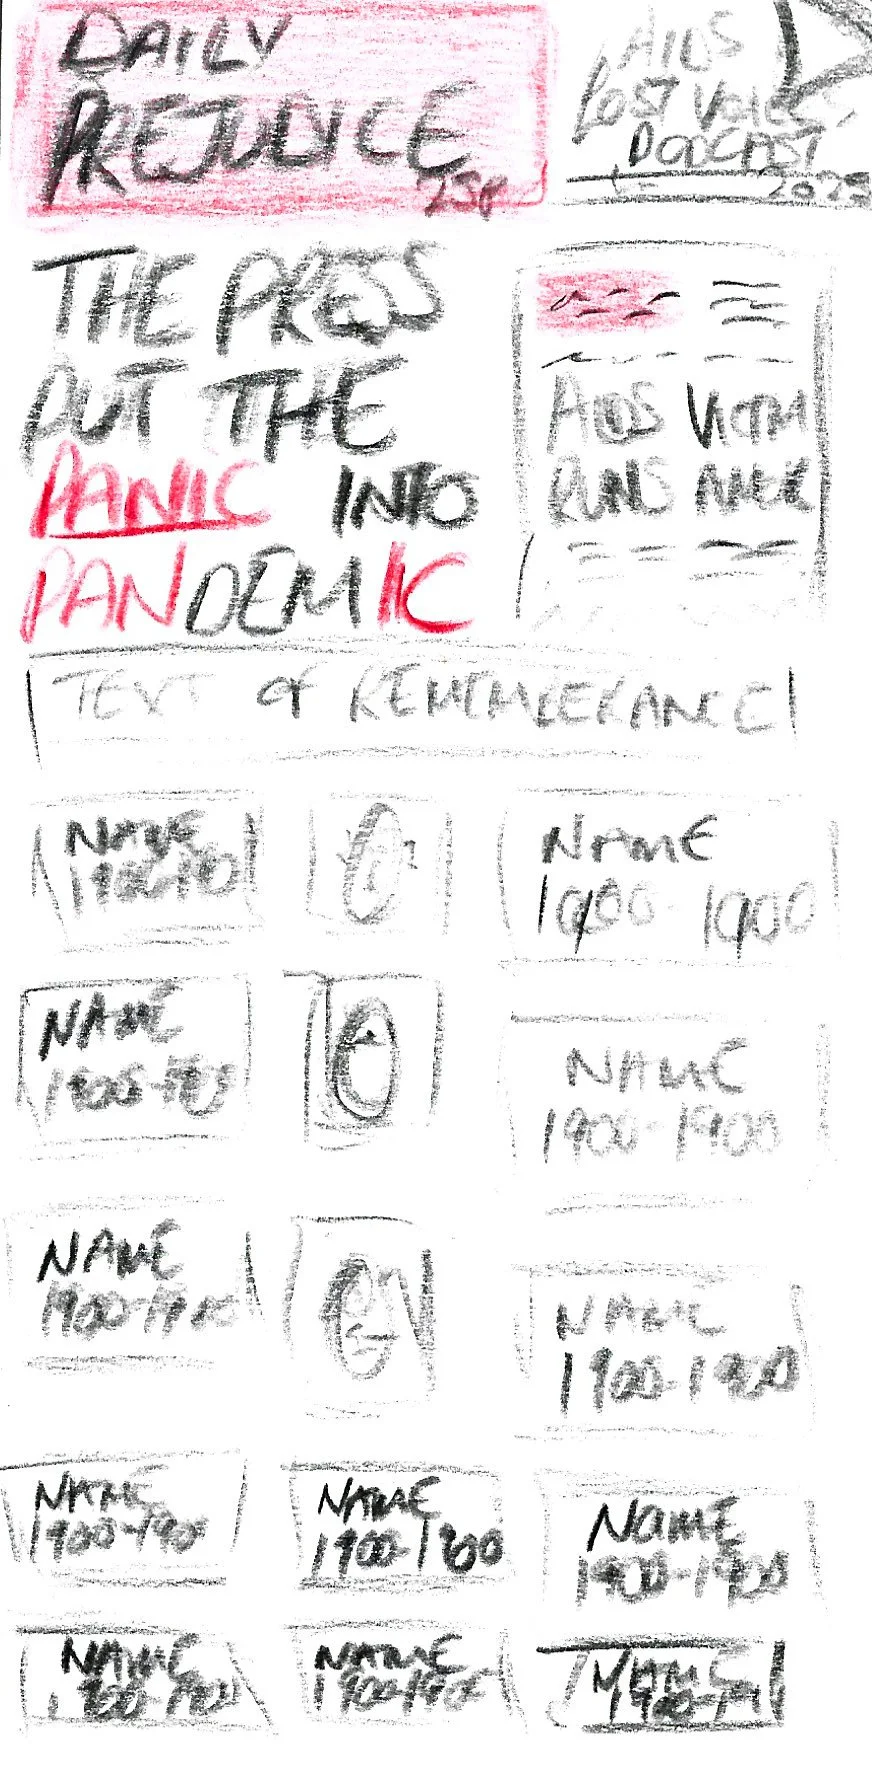 DAILY
PREJUDICE
25p
AIDS
LOST VOICES
PODCAST
2025
THE PRESS
PUT THE
PANIC INTO
PANDEMIC
AIDS VICTIM
RUNS
TEXT of REMEMBERANCE
NAME
NAME
1900-1900
NAME
NAME
1900-1900
NAME
1900-1900
NAME
1900-1900
NAME
1900-190
NAME
1900-1900
NAME
1900-1900
NAME
NAME
NAME